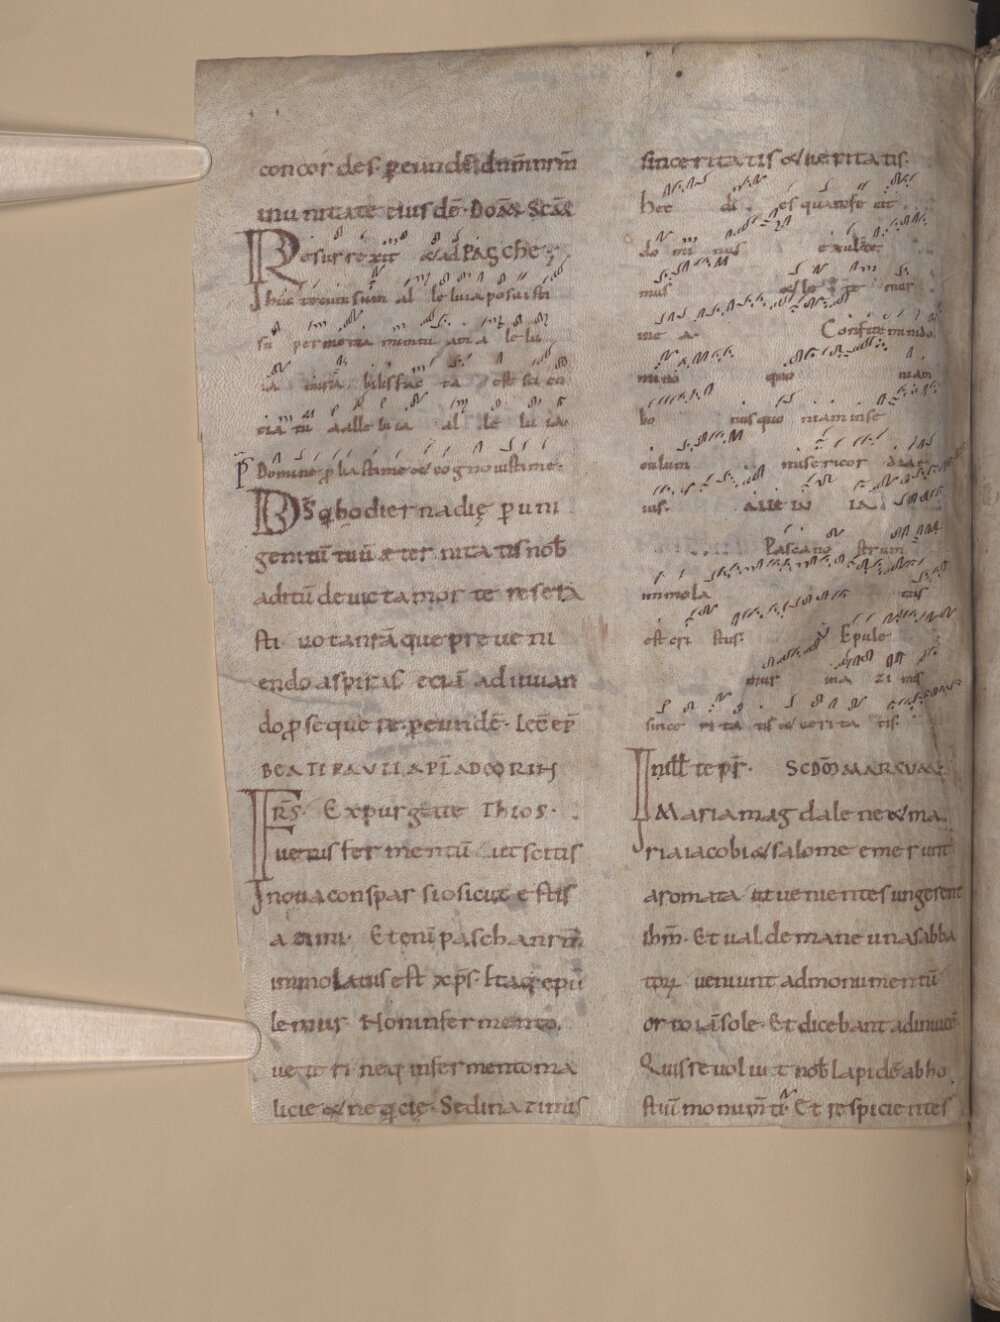 concordes. ꝑ eundē dnm̄ nrm̄
in unitate eiusdē. Dom̄. Sc̄a
Resurrexit & ad Pasche
huc tecum sum al le luia posuisti
su per me manum tuā al le lu
ia mira bilis fac ta est sci en
tia tu a alle lu ia al le lu ia.
P̄ Domine ꝓbasti me & cognouisti me.
DS̄ q̄ hodierna dię ꝑ uni
genitū tuū æternitatis nob̄
aditū deuicta morte resera
sti. uota nr̄a que preueni
endo aspiras. eciā adiuuan
do ꝓsequere. ꝑ eundē. Lec̄ ep̄
BEATI PAVLI APL̄ AD CORINT̄
FRS̄. Expurgate
uetus fermentū ut sitis
noua conspersio sicut estis
azimi. Etenī pascha nrm̄
immolatus est xp̄s. Itaq; epu
lemur. Non in fermento
ueteri. neq; in fermento ma
licie & neq̄cię. Sed in azimis
sinceritatis & ueritatis.
Hec di es quam fe cit
do mi nus exulte
mus & le te mur
in e a. Confitemini do
mino quo niam
bo nus quo niam in se
culum misericor dia e
ius. alle lu ia
Pascha no strum
immola tus
est cri stus. Epule
mur in a zi mis
since ri ta tis & uerita tis.
In ill̄ tēpr̄. SCDŌM MARCVM
Maria magdalene & ma
ria iacobi & salome emerunt
aromata ut uenientes ungerent
ihm̄. Et ualde mane una sabba
torꝝ ueniunt ad monumentū
orto iā sole. Et dicebant adinuicē.
Quis reuoluet nob̄ lapidē ab ho
stiū monumti. Et respicientes